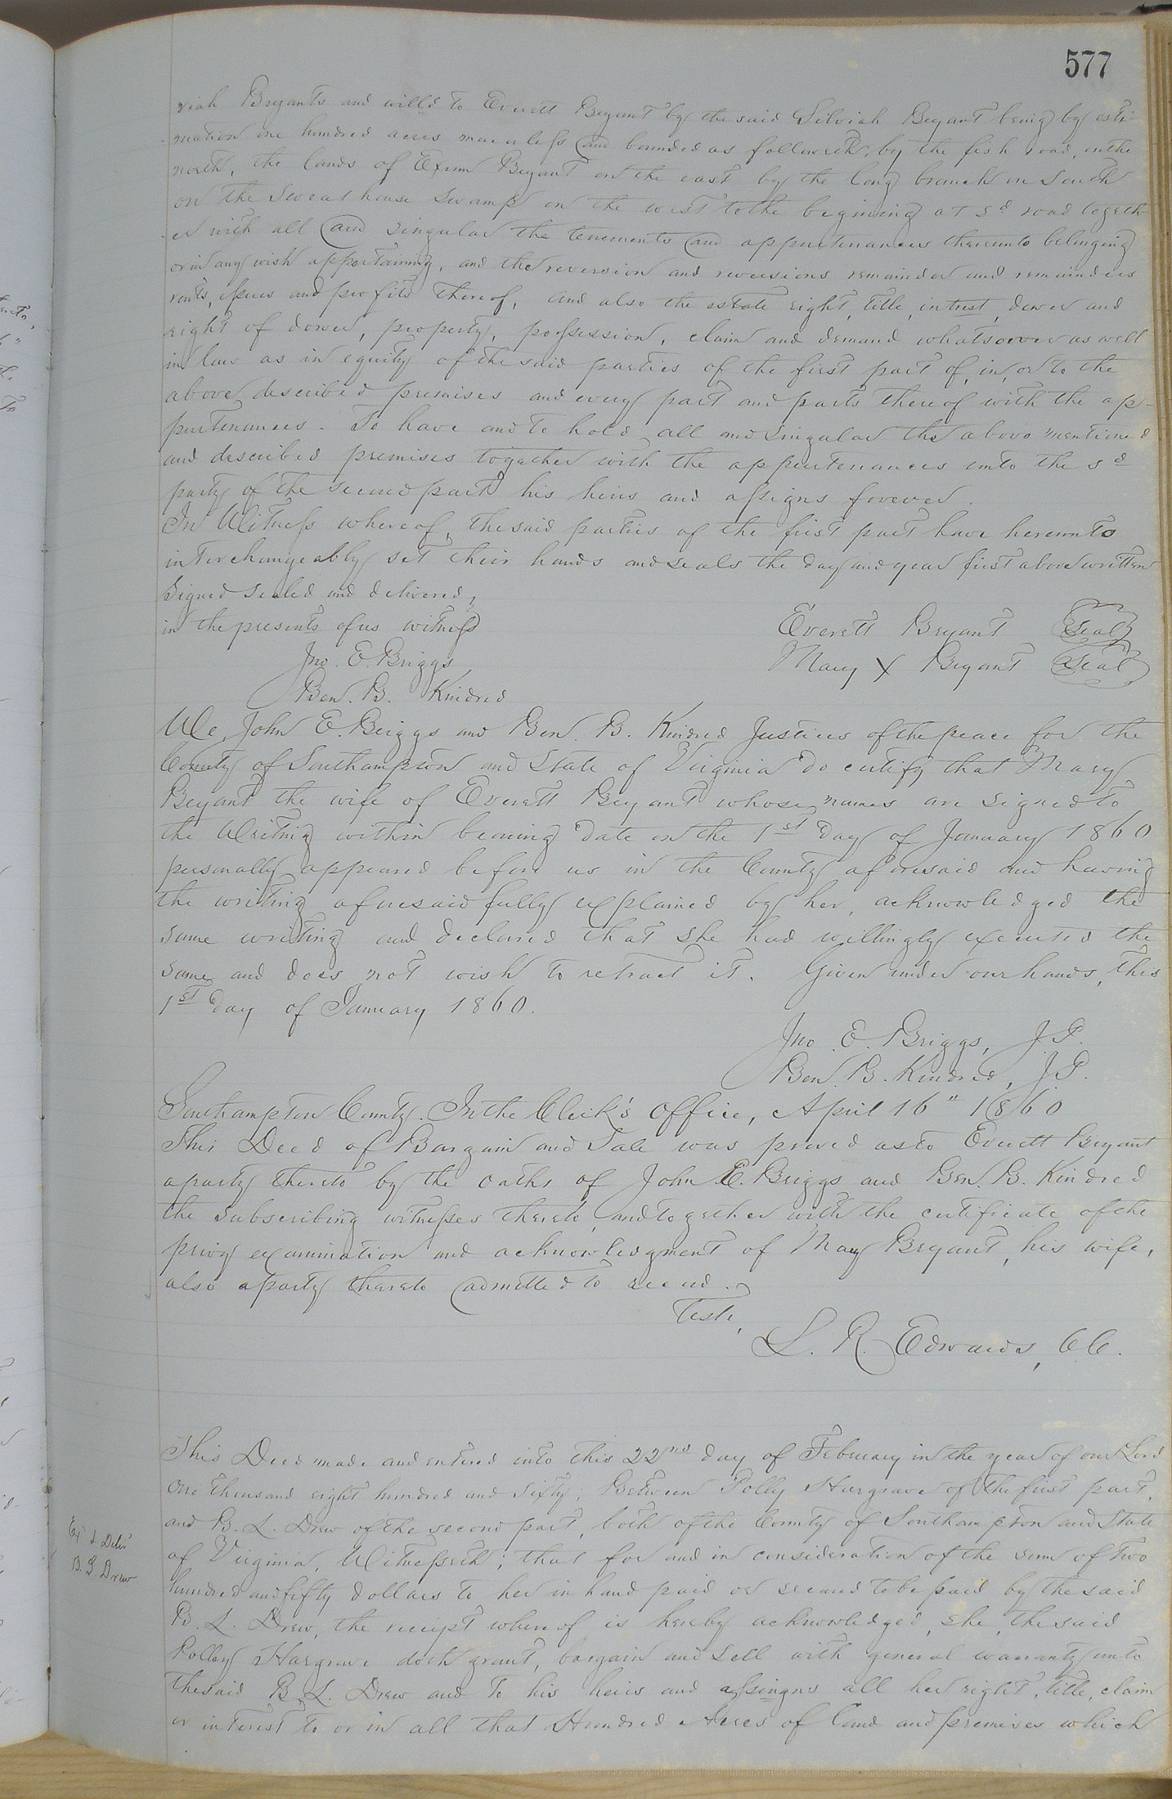 577
riah Bryants and will'd to Everett Bryant by the said Selviah Bryant being by esti-
mation one hundred acres more or less and bounded as followeth, by the fish road, on the
north, the lands of Exum Bryant on the east by the long branch on South
on the Sweat house Swamp on the west to the begining at sd road togeth-
er with all and singular the tenements and appurtenances thereunto belonging
or in any wish appertaining, and the reversion and reversions remainder and remainders
rents, issues and profits thereof, and also the estate right, title, intrest, dower and
right of dower, property, possession, claim and demand whatsoever as well
in law as in equity of the said parties of the first part of, in, or to the
above described premises and every part and parts thereof with the ap-
purtenances. To have and to hold all and singular the above mentioned
and described premises together with the appurtenances unto the sd
party of the second part his heirs and assigns forever.
In Witness whereof, the said parties of the first part have hereunto
interchangeably set their hands and seals the day and year first above written
Signed sealed and delivered,
in the presents of us witness
Everett Bryant Seal
Jno. E. Briggs
Mary X Bryant Seal
Ben. B. Kindred
We, John E. Briggs and Ben. B. Kindred Justices of the peace for the
County of Southampton and State of Virginia do certify that Mary
Bryant the wife of Everett Bryant whose names are signed to
the Writing within bearing date on the 1st day of January 1860
personally appeared before us in the County aforesaid and having
the writing aforesaid fully explained by her, acknowledged the
same writing and declared that she had willingly executed the
same and does not wish to retract it. Given under our hands, this
1st day of January 1860.
Jno. E. Briggs, J.P.
Ben. B. Kindred, J.P.
Southampton County. In the Clerk's Office, April 16" 1860
This Deed of Bargain and Sale was proved as to Everett Bryant
a party thereto by the oaths of John E. Briggs and Ben. B. Kindred
the subscribing witnesses thereto, and together with the certificate of the
privy examination and acknowledgment of May Bryant, his wife,
also a party thereto admitted to record.
Teste,
L. R. Edwards, CC.
This Deed made and entered into this 22nd day of February in the year of our Lord
one thousand eight hundred and sixty; Between Polly Hargrave of the first part,
and B. L. Drew of the second part, both of the County of Southampton and State
of Virginia, Witnesseth; that for and in consideration of the sum of two
hundred and fifty dollars to her in hand paid or secured to be paid by the said
B. L. Drew, the receipt whereof is hereby acknowledged, she, the said
Polley Hargrave doth grant, bargain and sell with general warranty unto
the said B. L. Drew and to his heirs and assingns all her right, title, claim
or interest to or in all that Hundred Acres of land and premises which
Ex'd & Deliv'd
B. L. Drew